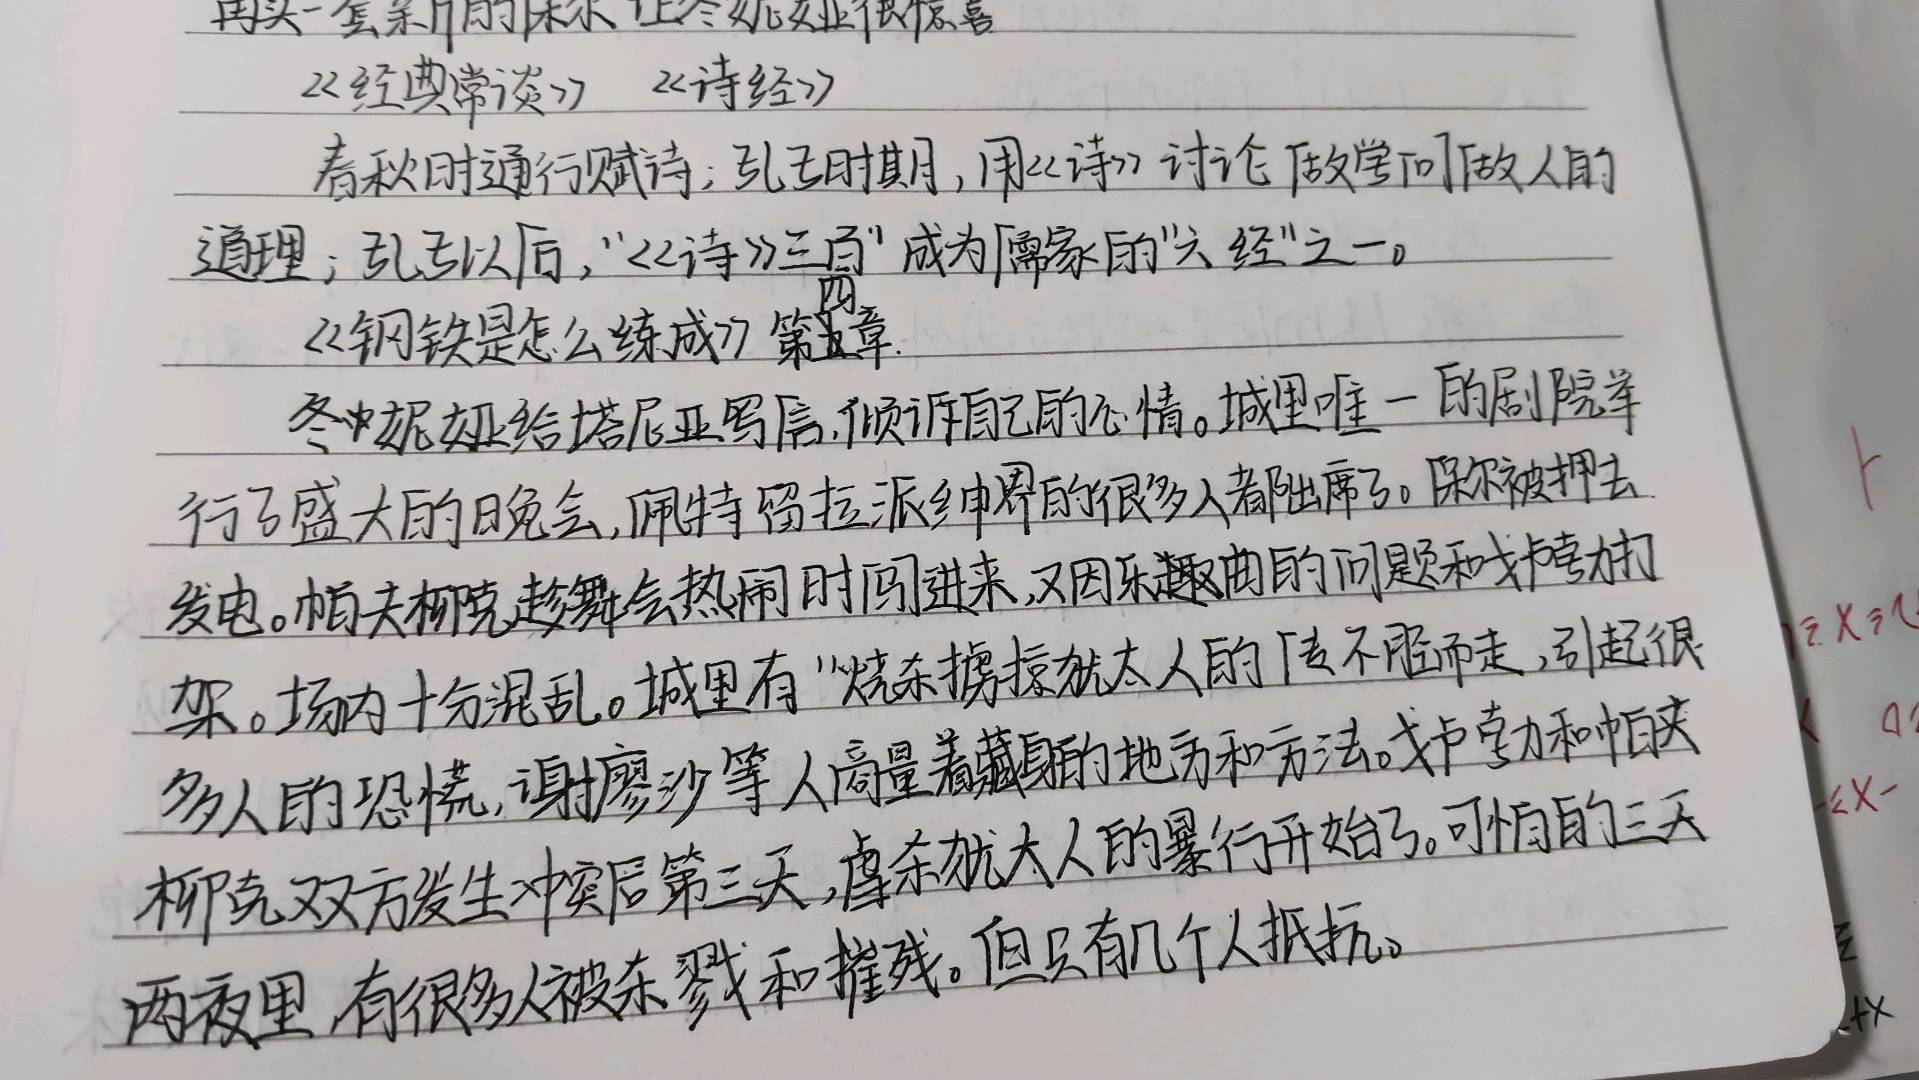 再买一套新的保尔让冬妮娅很惊喜
《经典常谈》 《诗经》
春秋时通行赋诗；孔子时期，用《诗》讨论做学问做人的
道理；孔子以后，"《诗》三百"成为儒家的"六经"之一。
《钢铁是怎么练成》第四章.
冬妮娅给塔尼亚写信，倾诉自己的心情。城里唯一的剧院举
行了盛大的晚会，佩特留拉派绅界的很多人都出席了。保尔被押去
发电。帕夫柳克趁舞会热闹时闯进来，又因乐趣曲的问题和戈卢勃打
架。场内十分混乱。城里有"烧杀掳掠犹太人的传不胫而走，引起很
多人的恐慌，谢廖沙等人商量着藏身的地方和方法。戈卢勃和帕夫
柳克双方发生冲突后第三天，虐杀犹太人的暴行开始了。可怕的三天
两夜里，有很多人被杀戮和摧残。但只有几个人抵抗。